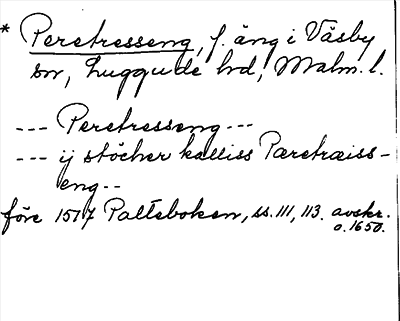 * Peretresseng, f. äng i Väsby
sn, Luggude hd, Malm. l.
--- Peretresseng ---
--- ij støcher kalliss Pæretræiss-
eng--
före 1517 Palteboken, ss. 111, 113. avskr.
o. 1650.